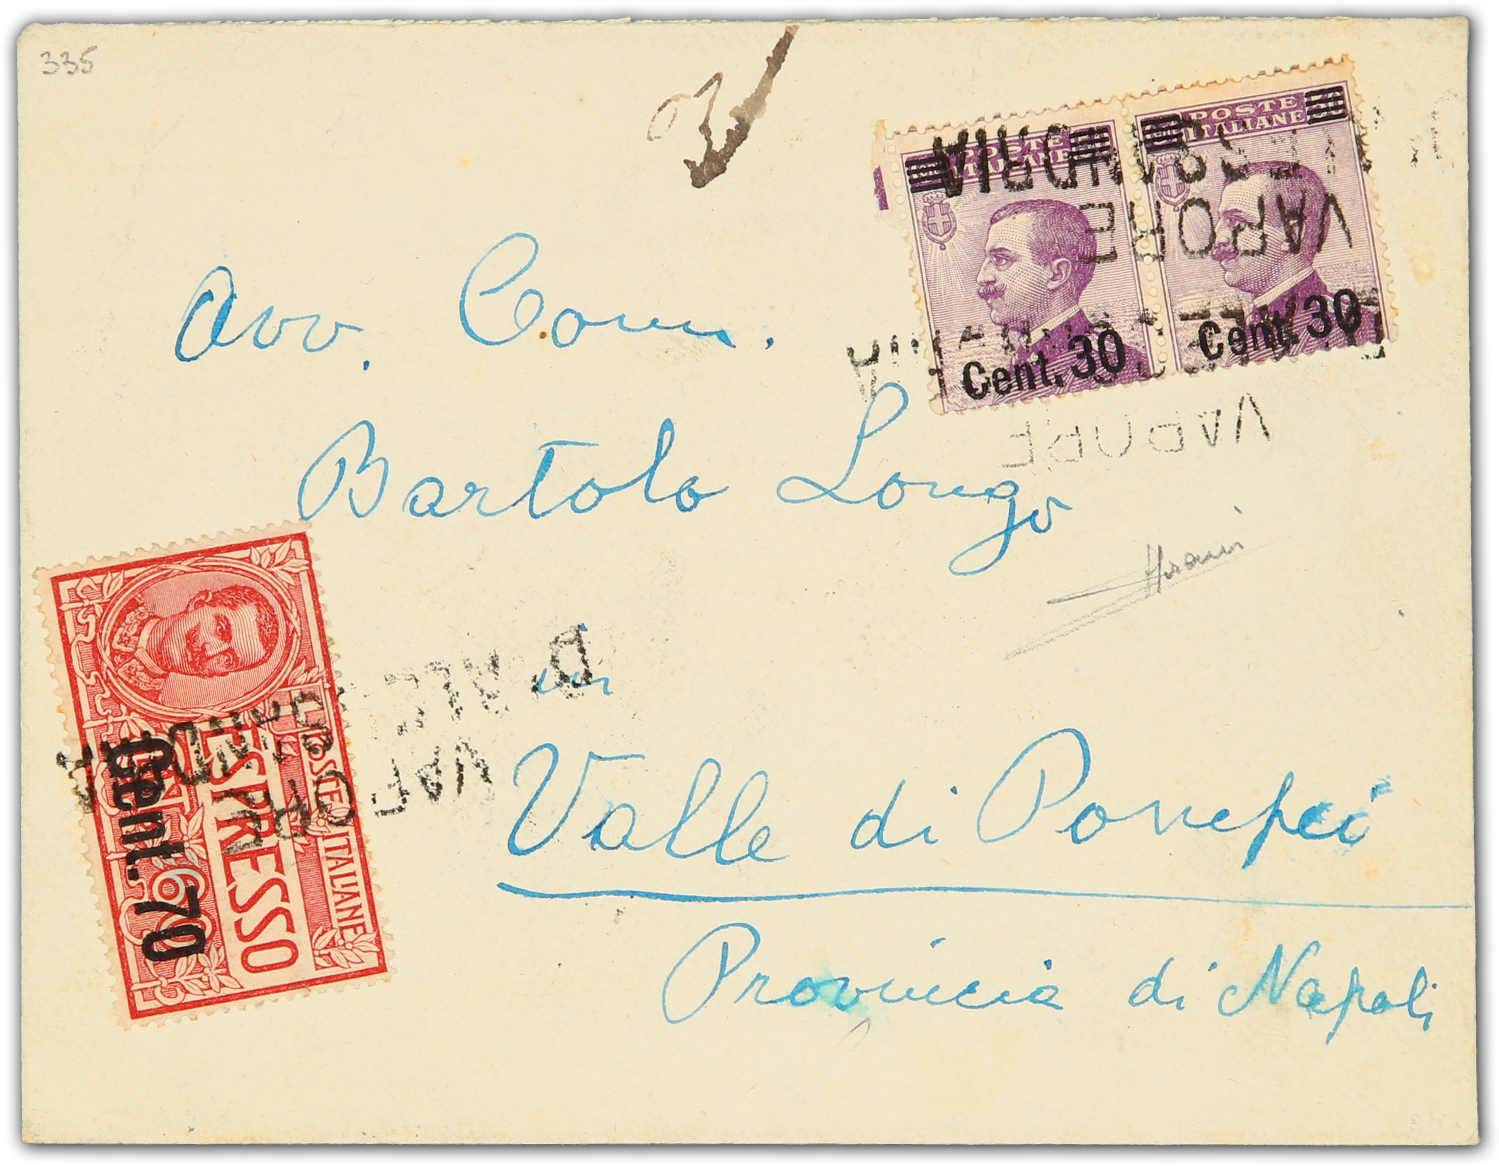 335
POSTE
ITALIANE
Cent. 30
POSTE
ITALIANE
Cent. 30
VAPORE
VAPORE
Avv. Comm.
Bartolo Longo
in
Valle di Pompei
Provincia di Napoli
POSTE ITALIANE
ESPRESSO
Cent. 70